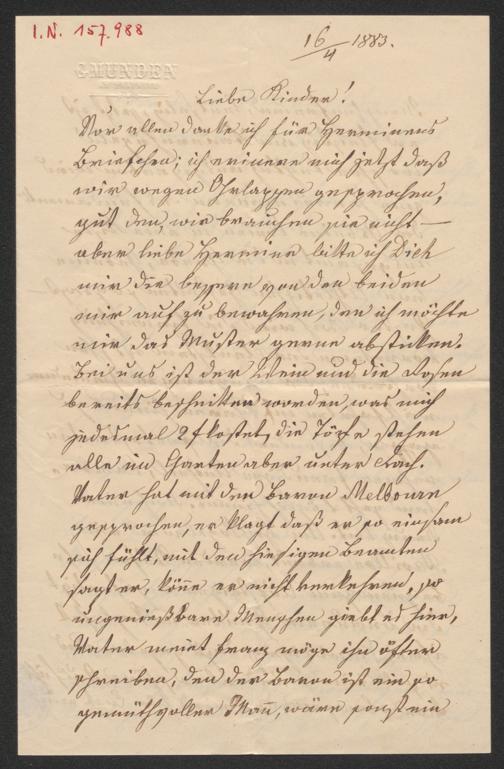 I.N. 157.988
16/4 1883.
GMUNDEN
Liebe Kinder!
Vor allen danke ich für Herminens
Briefchen; ich erinere mich jetzt daß
wir wegen Ohrlappen gesprochen,
gut den, wir brauchen sie nicht —
aber liebe Hermine bitte ich Dich
mir die bessere von den beiden
mir auf zu bewahren, den ich möchte
mir das Muster gerne absticken.
Bei uns ist der Wein und die Rosen
bereits beschnitten worden, was mich
jedesmal 2 f kostet, die Töpfe stehen
alle im Garten aber unter Dach.
Vater hat mit den Baron
gesprochen, er klagt daß er so einsam
sich fühlt, mit den hiesigen Beamten
sagt er, köñe er nicht verkehren, so
ungenießbare Menschen giebt es hier,
Vater meint Franz möge ihn öfter
schreiben, den der Baron ist ein so
gemüthvoller Mañ, wäre sonst ein